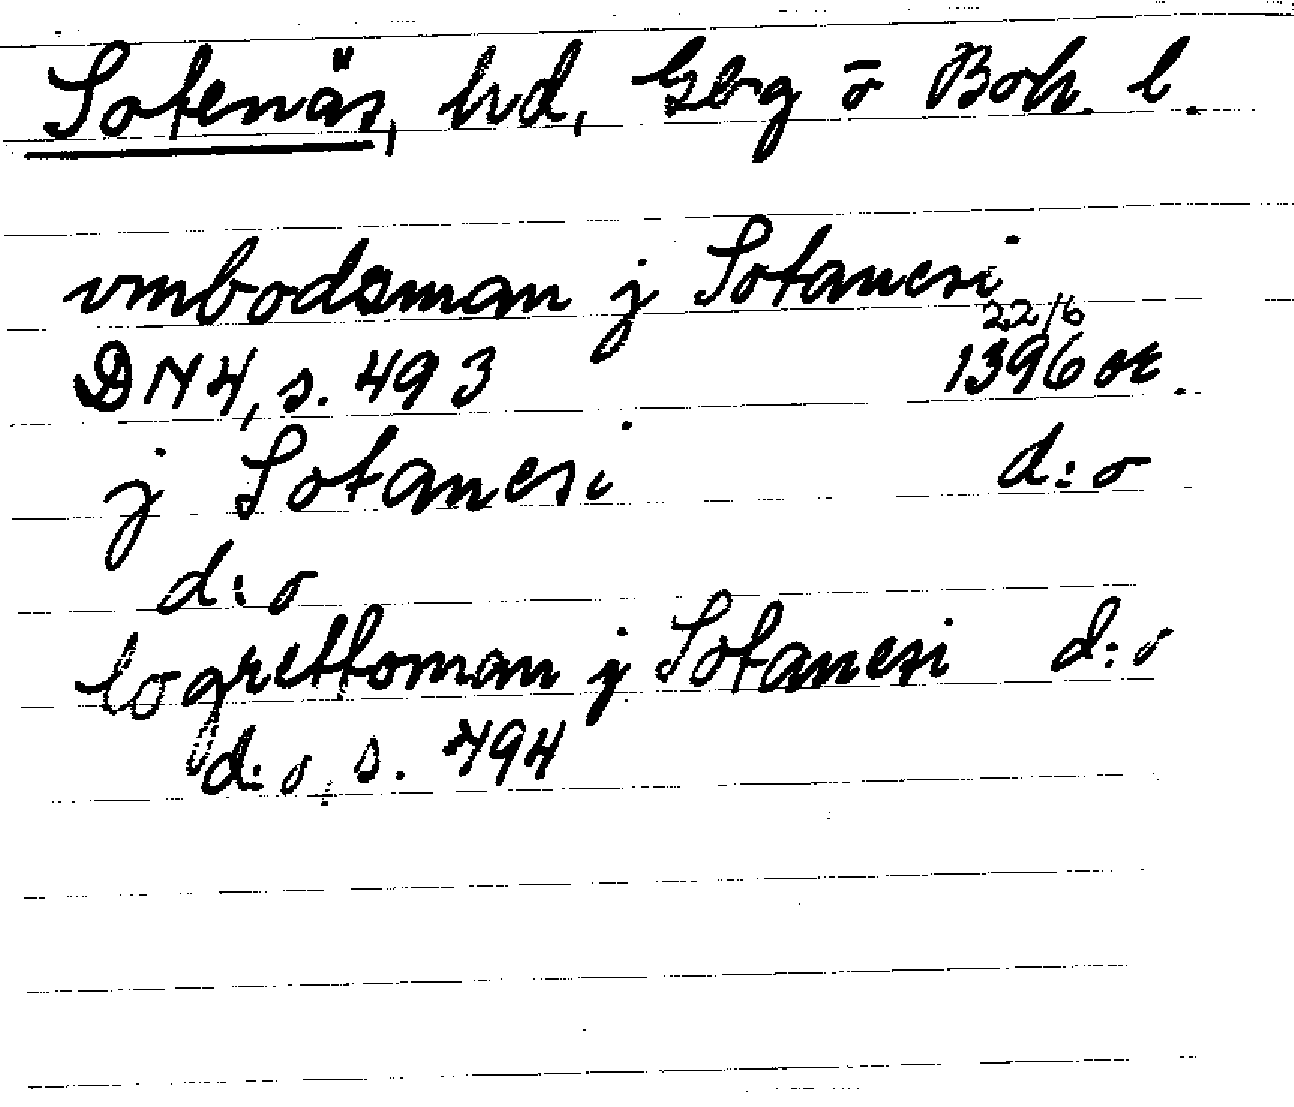 Sotenäs, hd, Gbg o Boh. l.
vmbodzman j Sotanesi
22/6
DN 4, s. 493 1396 or.
j Sotanesi d:o
d:o
logrettoman j Sotanesi d:o
d:o, s. 494